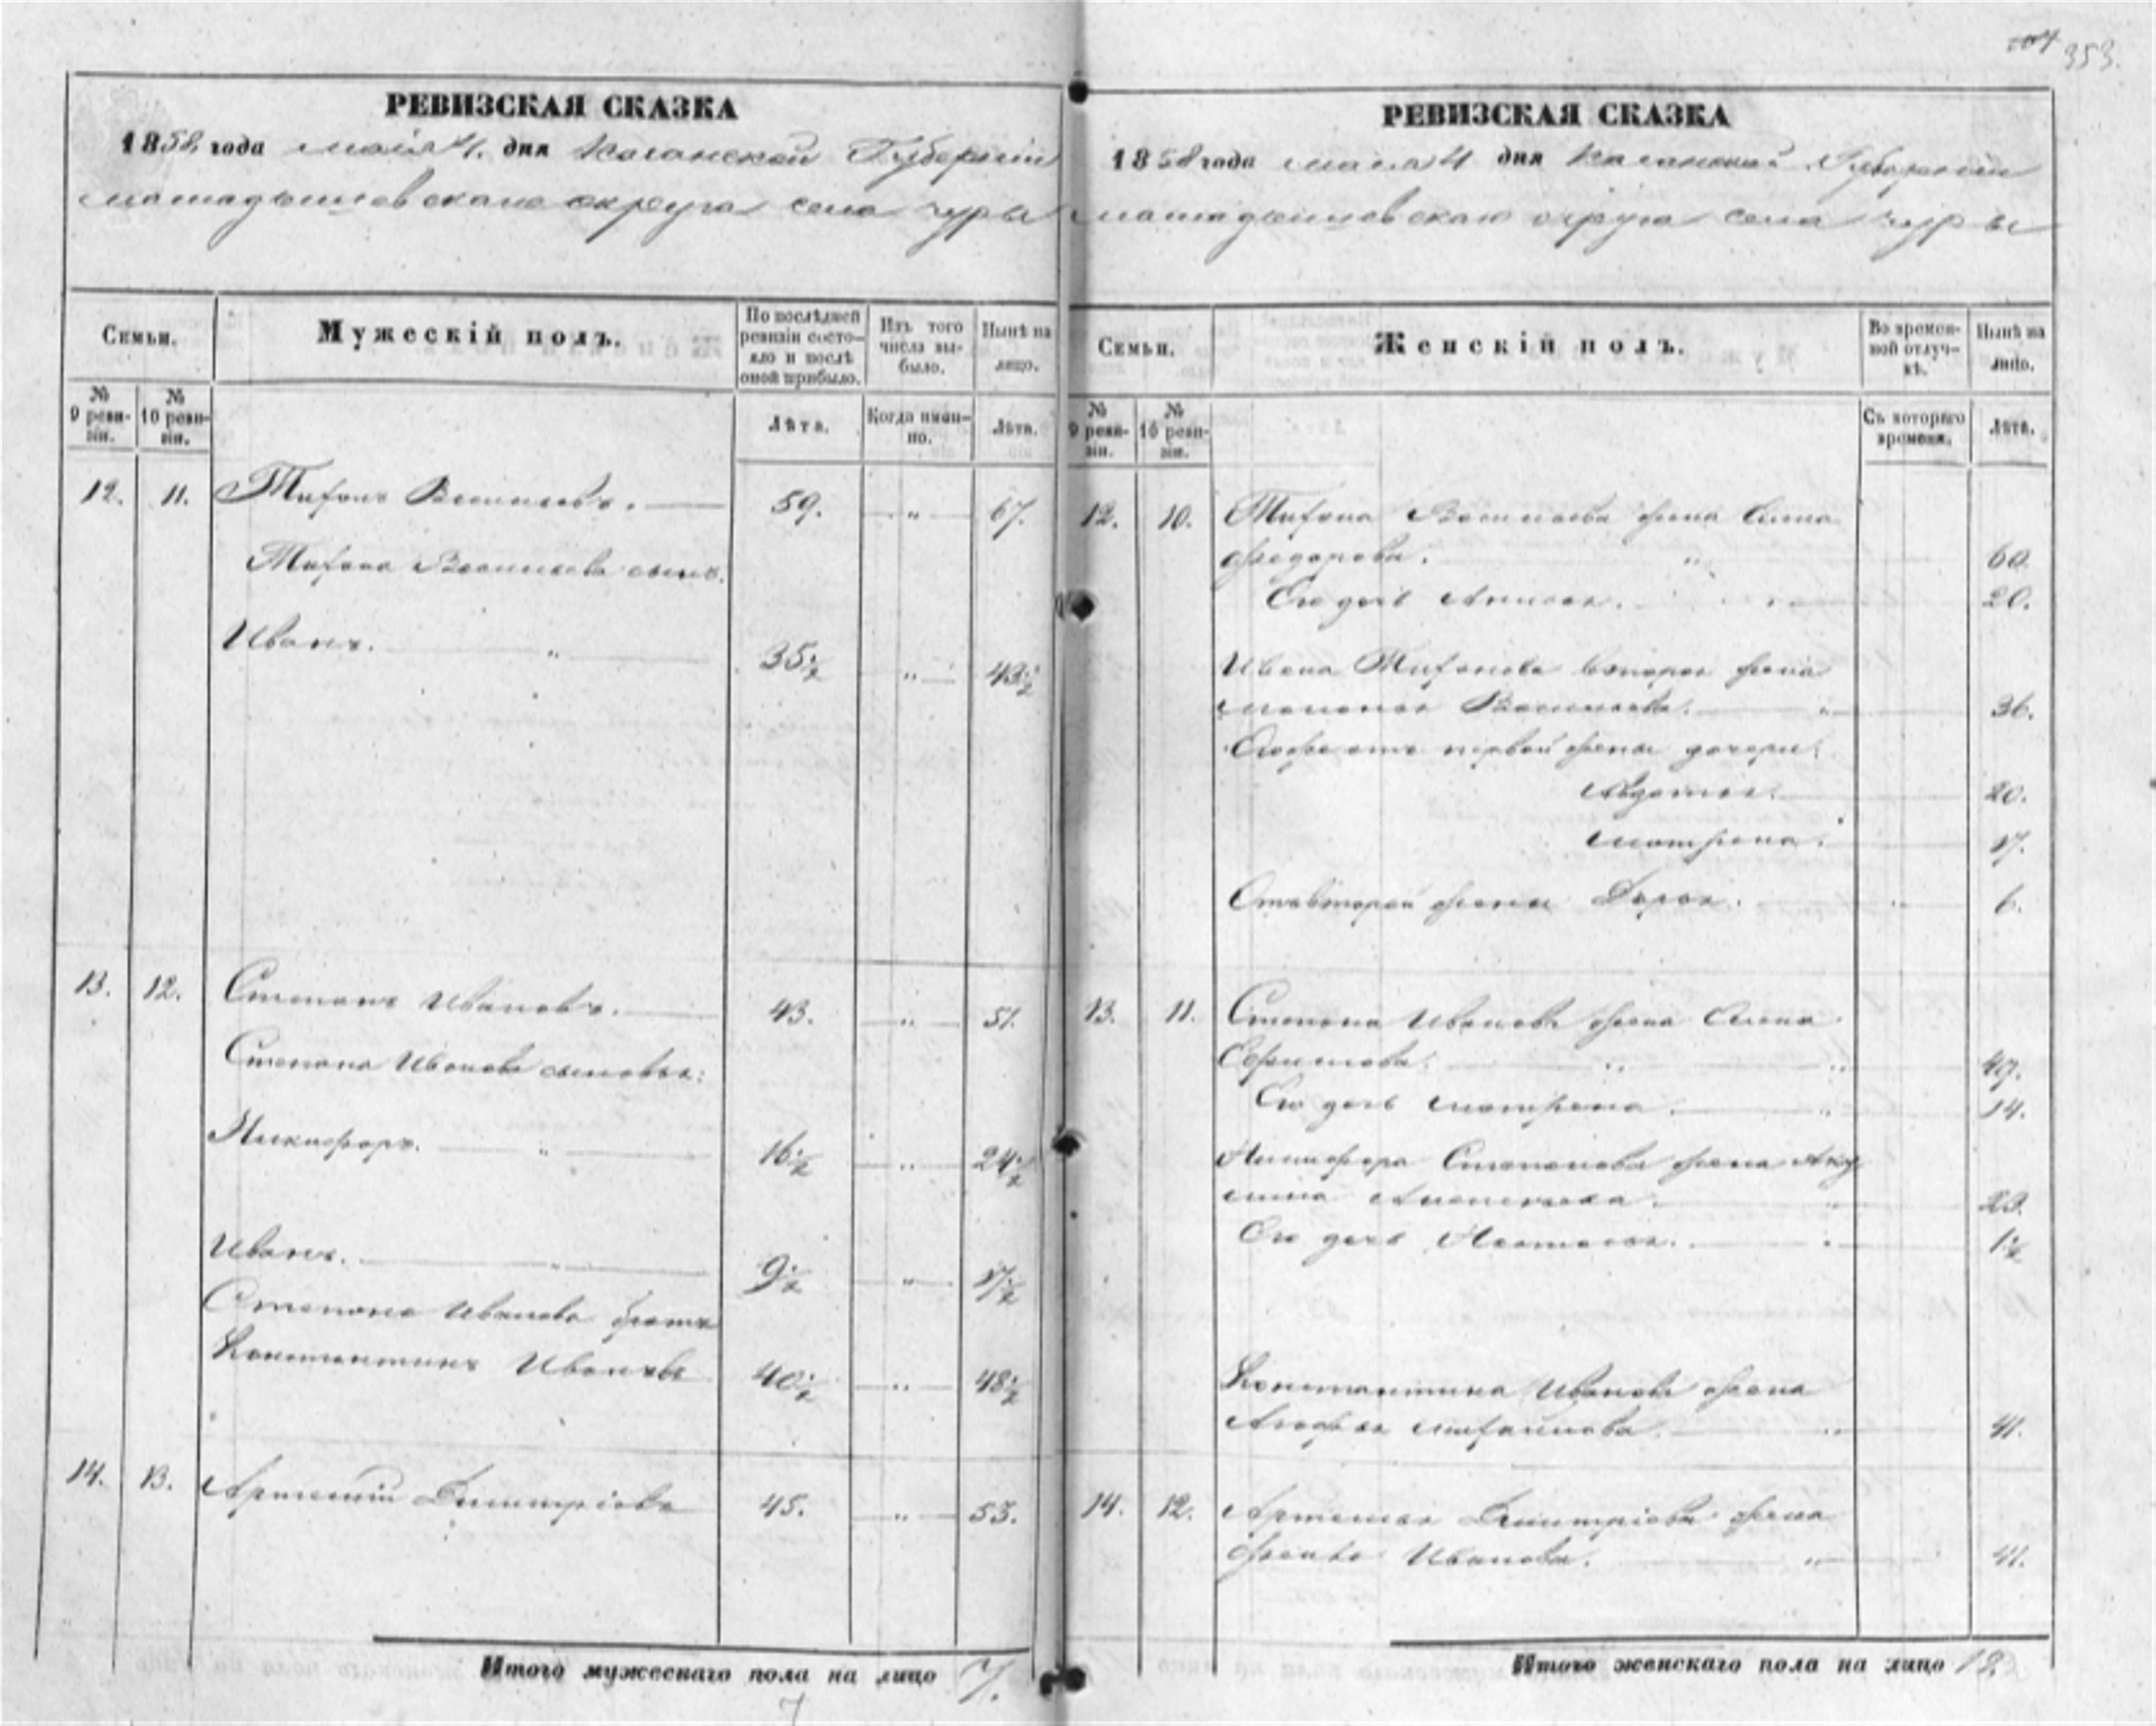 353.
РЕВИЗСКАЯ СКАЗКА
1858 года мая 4. дня Казанской Губернии
мамадышевскаго округа села чуры
Семьи.
Мужескій полъ.
По послѣдней ревизіи состояло и послѣ оной прибыло.
Изъ того числа выбыло.
Нынѣ на лицо.
№ 9 ревизіи.
№ 10 ревизіи.
Лѣта.
Когда именно.
Лѣта.
12. 11. Тихонъ Васильевъ. 59. " 67.
Тихона Васильева сынъ.
Иванъ. " 35½ " 43½
13. 12. Степанъ Ивановъ. 43. " 51.
Степана Иванова сыновья:
Никифоръ. " 16½ " 24½
Иванъ. " 9½ " 17½
Степана Иванова братъ
Константинъ Ивановъ 40½ " 48½
14. 13. Артемій Дмитріевъ 45. " 53.
Итого мужескаго пола на лицо 7.
7
РЕВИЗСКАЯ СКАЗКА
1858 года мая 4 дня Казанской Губернии
мамадышевскаго округа села чуры
Семьи.
Женскій полъ.
Во временной отлучкѣ.
Нынѣ на лицо.
№ 9 ревизіи.
№ 10 ревизіи.
Съ котораго времени.
Лѣта.
12. 10. Тихона Васильева жена
федорова. " 60.
Его дочь Анисья. " 20.
Ивана Тихонова вторая жена
Васильева. " 36.
Егоже отъ первой жены дочери:
Авдотья. 20.
матрена. 17.
Отъ второй жены Дарья. " 6.
13. 11. Степана Иванова жена
Ефимова. " " 49.
Его дочь матрена. " 14.
Никифора Степанова жена Аку
лина " 23.
Его дочь Настасья. " 1½
Константина Иванова жена
Агафья михайлова. " 41.
14. 12. Артемья Дмитріева жена
Иванова. " 41.
Итого женскаго пола на лицо 12